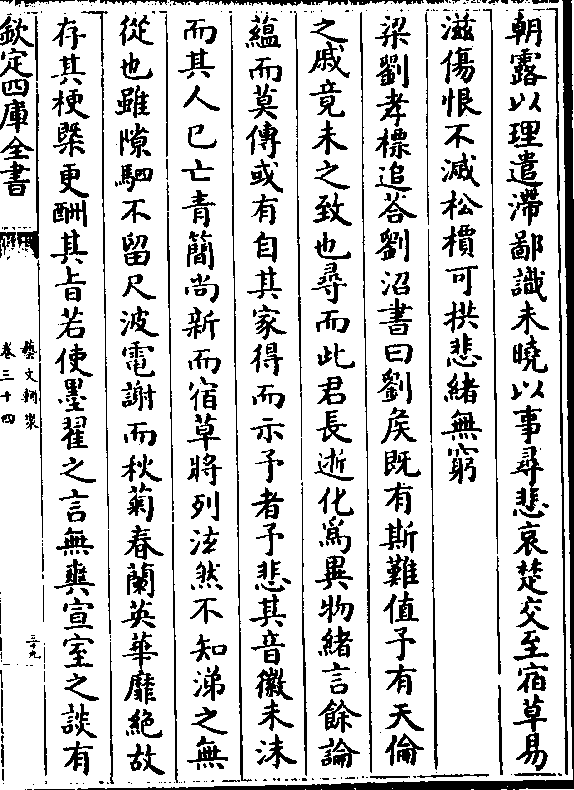 朝露以理遣滯鄙識未曉以事尋悲哀楚交至宿草易
滋傷恨不滅松檟可拱悲緒無窮
梁劉孝標追荅劉沼書曰劉矦既有斯難值予有天倫
之戚竟未之致也尋而此君長逝化為異物緒言餘論
蘊而莫傳或有自其家得而示予者予悲其音徽未沬
而其人已亡青簡尚新而宿草將列泫然不知涕之無
從也雖隙駟不留尺波電謝而秋菊春蘭英華靡絕故
存其梗槩更酬其旨若使墨翟之言無爽宣室之談有
欽定四庫全書
藝文類聚
卷三十四
三十九